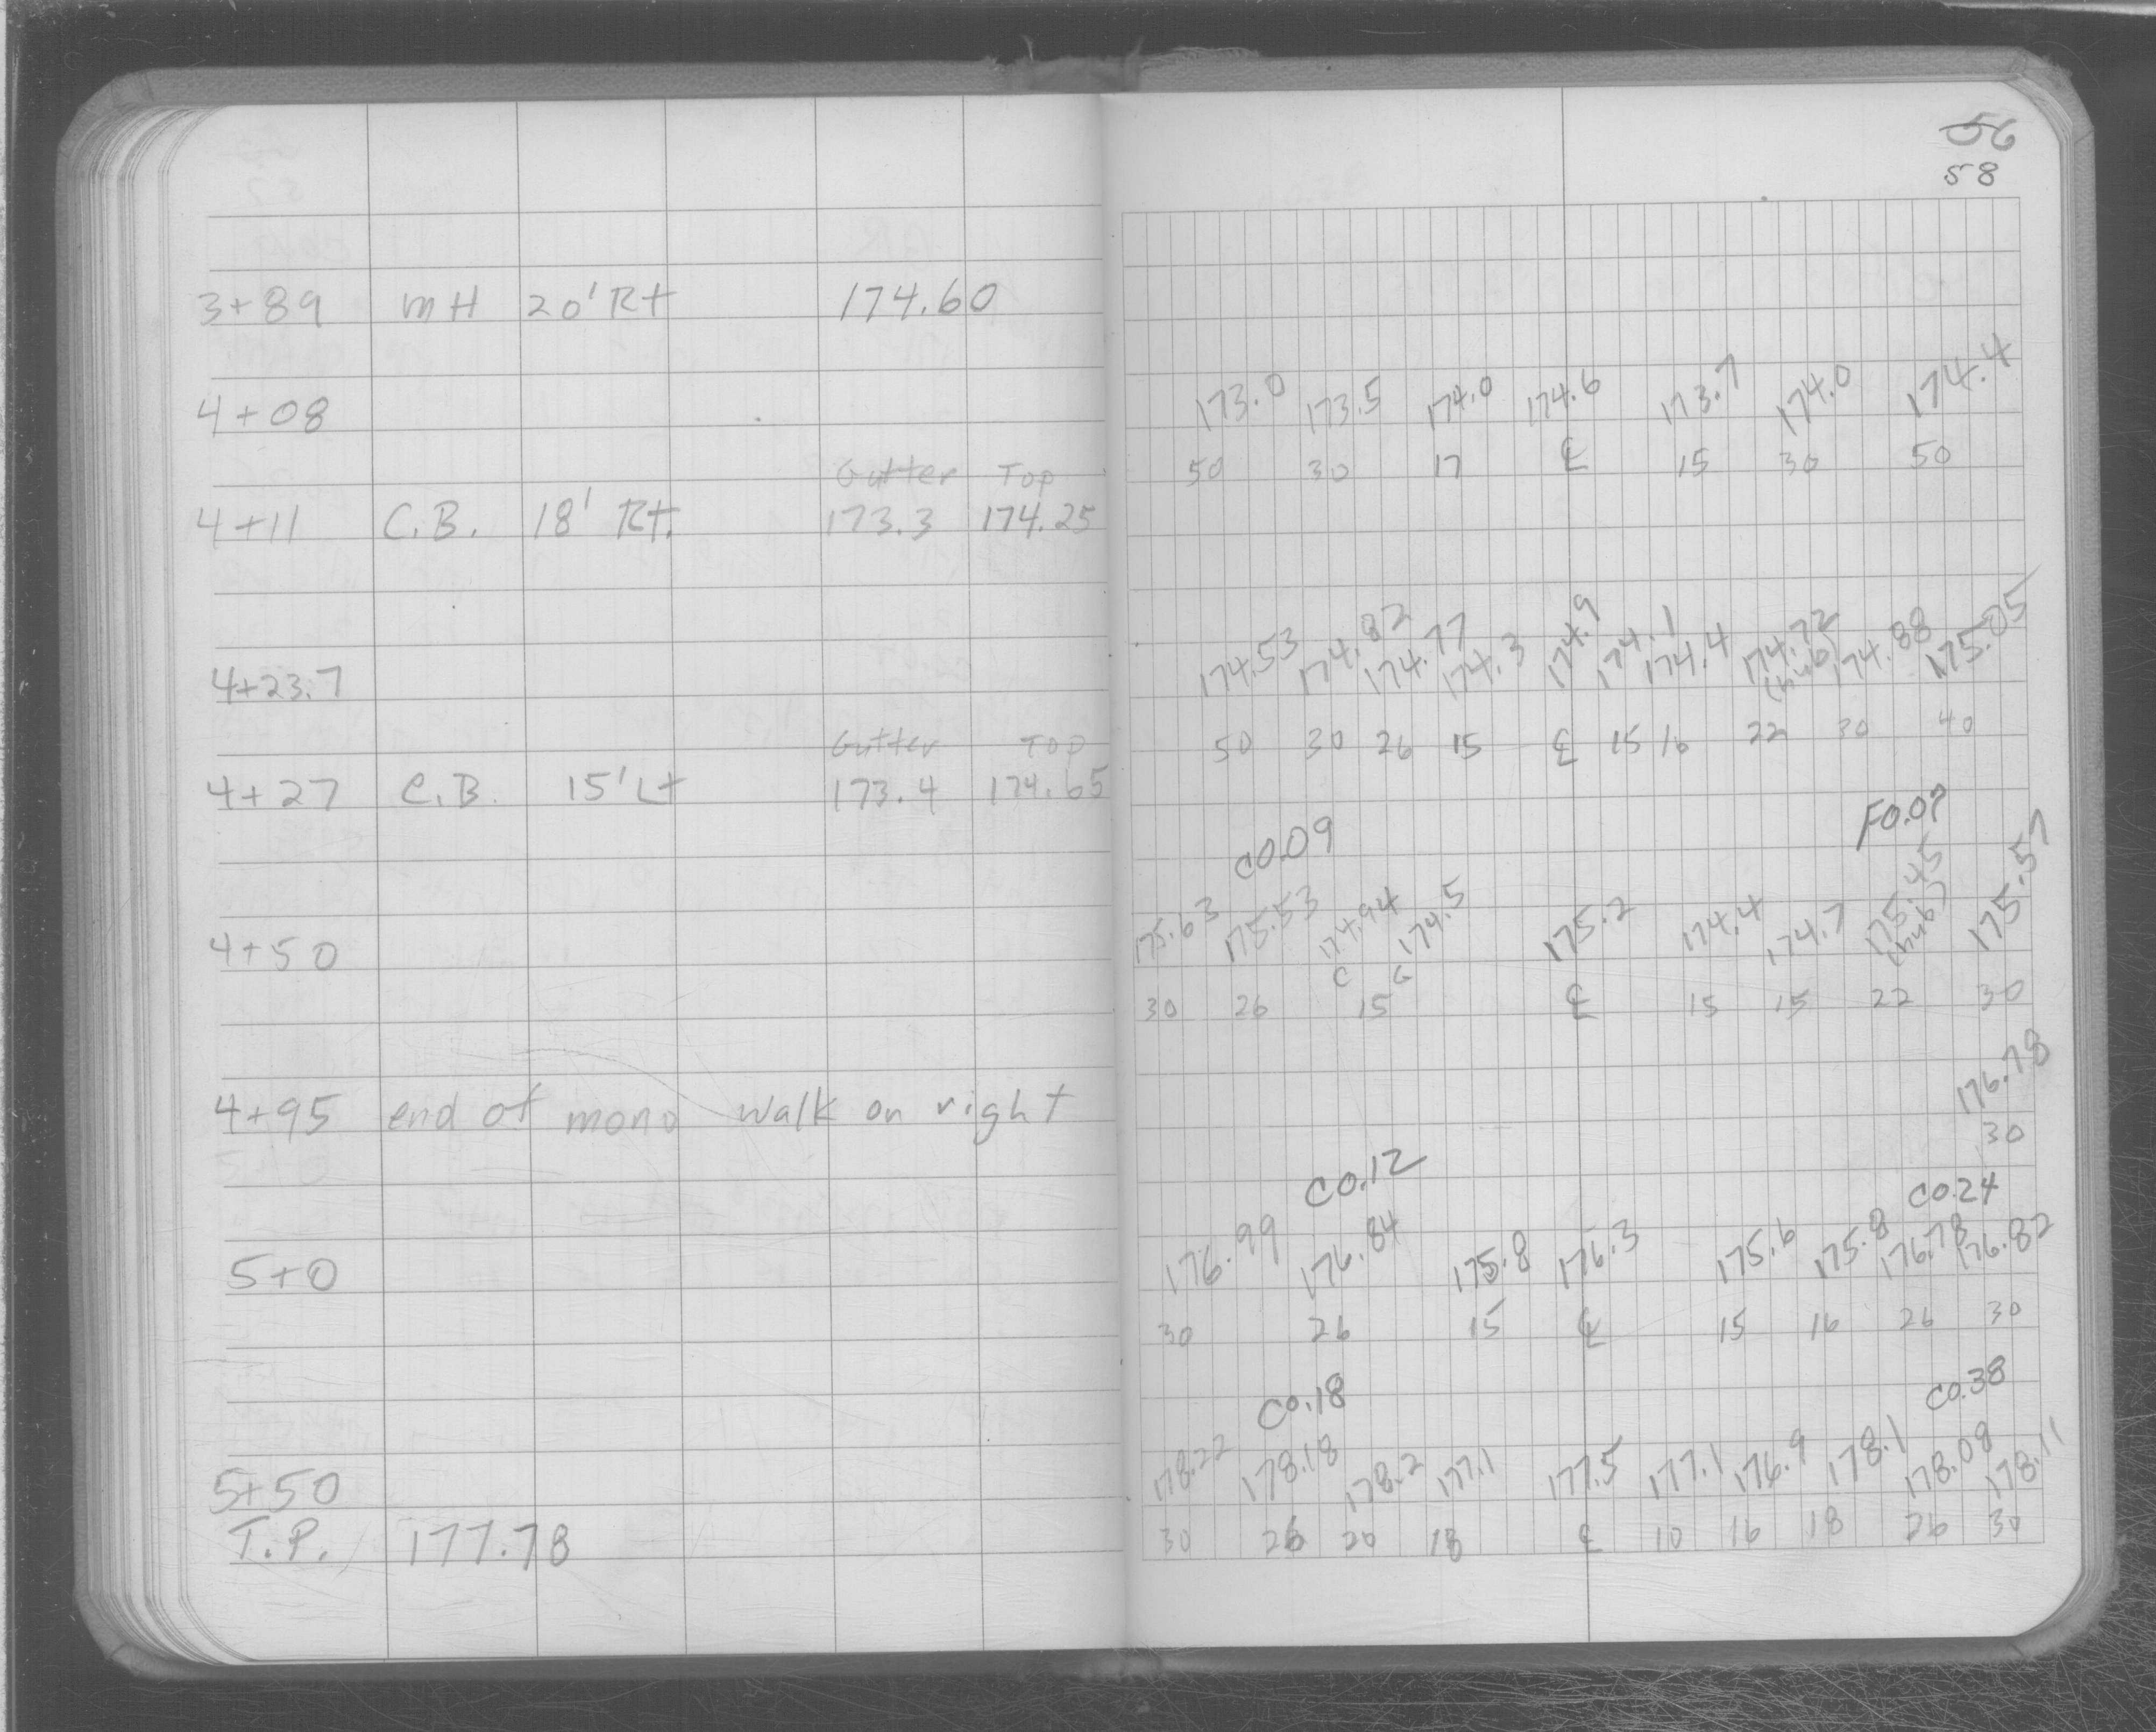 56
58
3+89 MH 20' Rt 174.60
173.0 173.5 174.0 174.6 173.7 174.0 174.4
4+08
50 30 17 ℄ 15 30 50
Gutter Top
4+11 C.B. 18' Rt. 173.3 174.25
174.53 174.82 174.77 174.3 174.9 174.1 174.4 174.72 (hub) 174.88 175.05
4+23.7
50 30 26 15 ℄ 15 16 22 30 40
Gutter Top
4+27 C.B. 15' Lt 173.4 174.65
C0.09 F0.07
175.63 175.53 174.94 174.5 175.2 174.4 174.7 175.45 (hub) 175.57
4+50
C G
30 26 15 ℄ 15 15 22 30
176.78
4+95 end of mono walk on right
30
C0.12 C0.24
176.99 176.84 175.8 176.3 175.6 175.8 176.78 176.82
5+0
30 26 15 ℄ 15 16 26 30
C0.18 C0.38
178.22 178.18 178.2 177.1 177.5 177.1 176.9 178.1 178.08 178.11
5+50
30 26 20 18 ℄ 10 16 18 26 30
T.P. 177.78